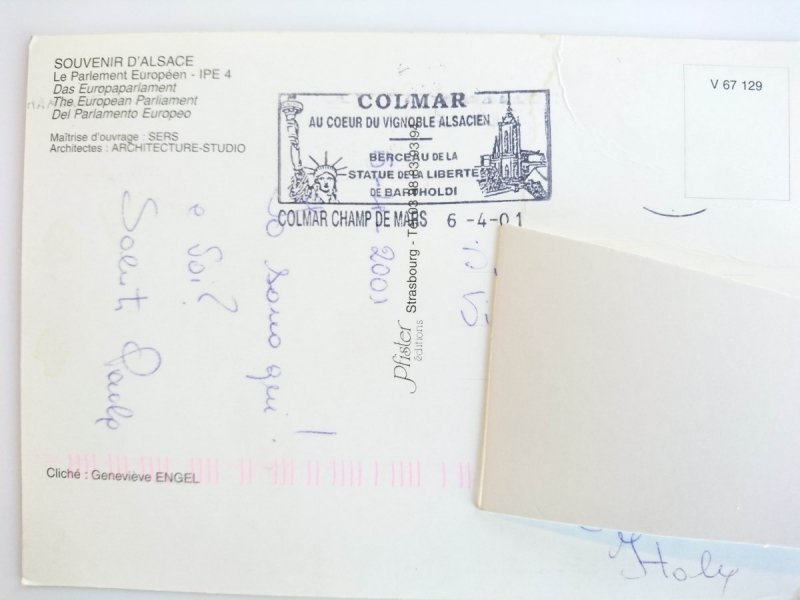 SOUVENIR D'ALSACE
Le Parlement Européen - IPE 4
Das Europaparlament
The European Parliament
Del Parlamento Europeo
Maîtrise d'ouvrage : SERS
Architectes : ARCHITECTURE-STUDIO
COLMAR
AU COEUR DU VIGNOBLE ALSACIEN
BERCEAU DE LA
STATUE DE LA LIBERTE
DE BARTHOLDI
COLMAR CHAMP DE MARS 6 -4-01
V 67 129
Pfister
éditions
Strasbourg -
2001
Io sono qui!
e Voi?
Saluti Paola
Cliché : Geneviève ENGEL
Italy